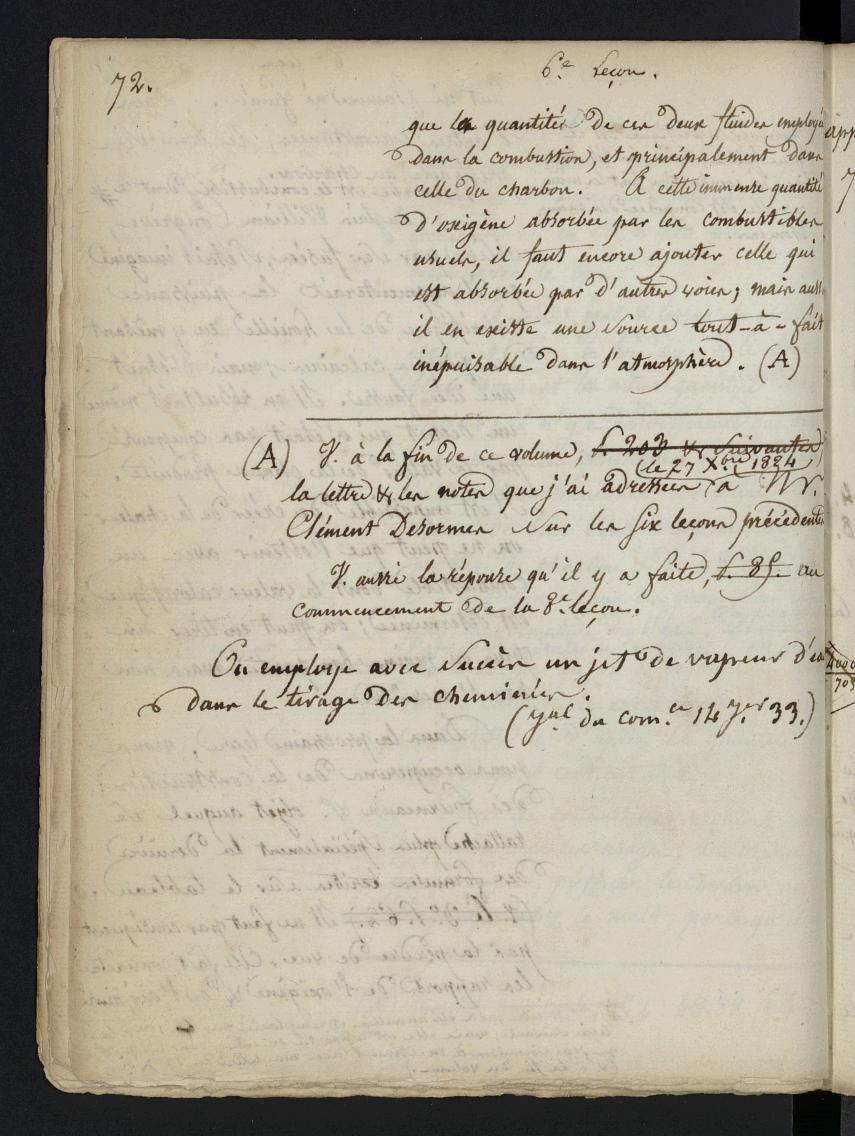 72.
6.e Leçon.
que les quantités de ces deux fluides employés
dans la combustion, et principalement dans
celle du charbon. À cette immense quantité
d'oxigène absorbée par les combustibles
usuels, il faut encore ajouter celle qui
est absorbée par d'autres voies; mais aussi
il en existe une source tout-à-fait
inépuisable dans l'atmosphère. (A)
(A) V. à la fin de ce volume, f. 203 & suivantes
(le 27 Xbre 1824)
la lettre & les notes que j'ai adressées à Mr.
Clément Desormes sur les six leçons précédentes
V. aussi la réponse qu'il y a faite, f. 85. au
commencement de la 8.e leçon.
On employe avec succès un jet de vapeur d'eau
dans le tirage des cheminées.
(Jnal du com.ce 14 33.)
app
4000
705